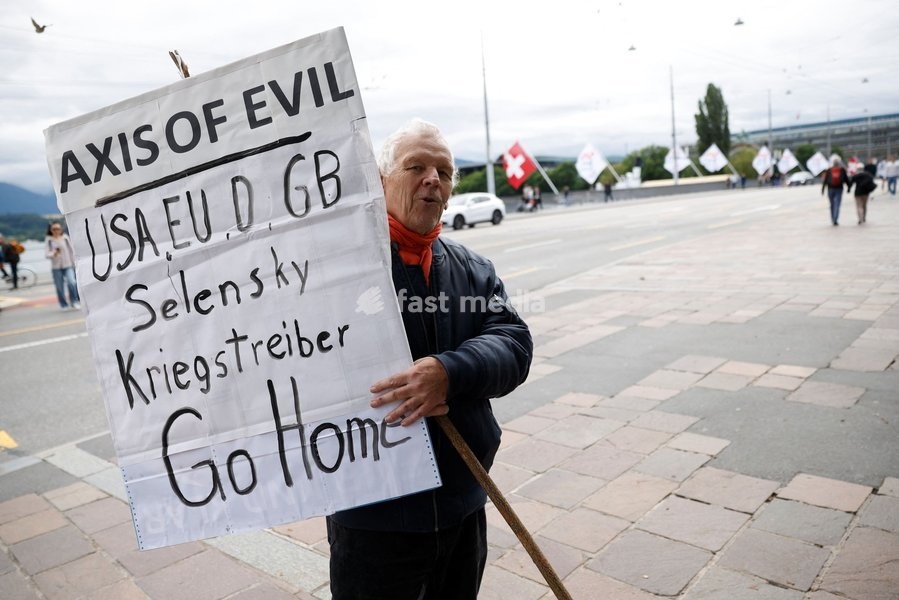 AXIS OF EVIL
USA, EU, D, GB
Selensky
Kriegstreiber
Go Home
fast media